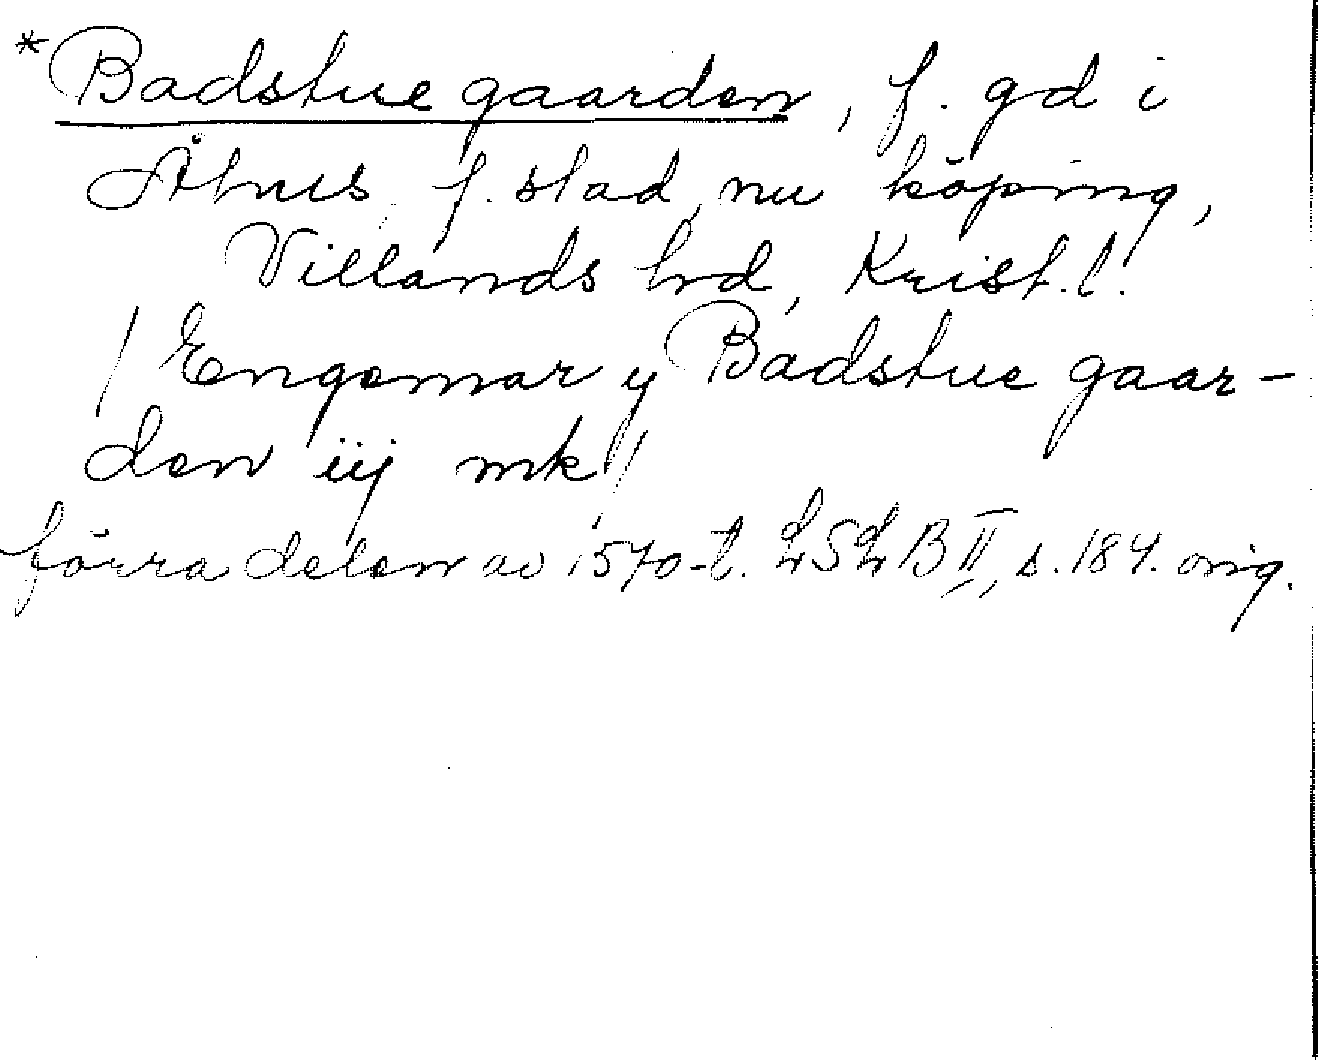 *Badstue gaarden, f. gd i
Åhus, f. stad, nu köping,
Villands hd, Krist. l.
/ Engemar y Badstue gaar-
den iij mk /
förra delen av 1570-t. LSLB II, s. 184. orig.